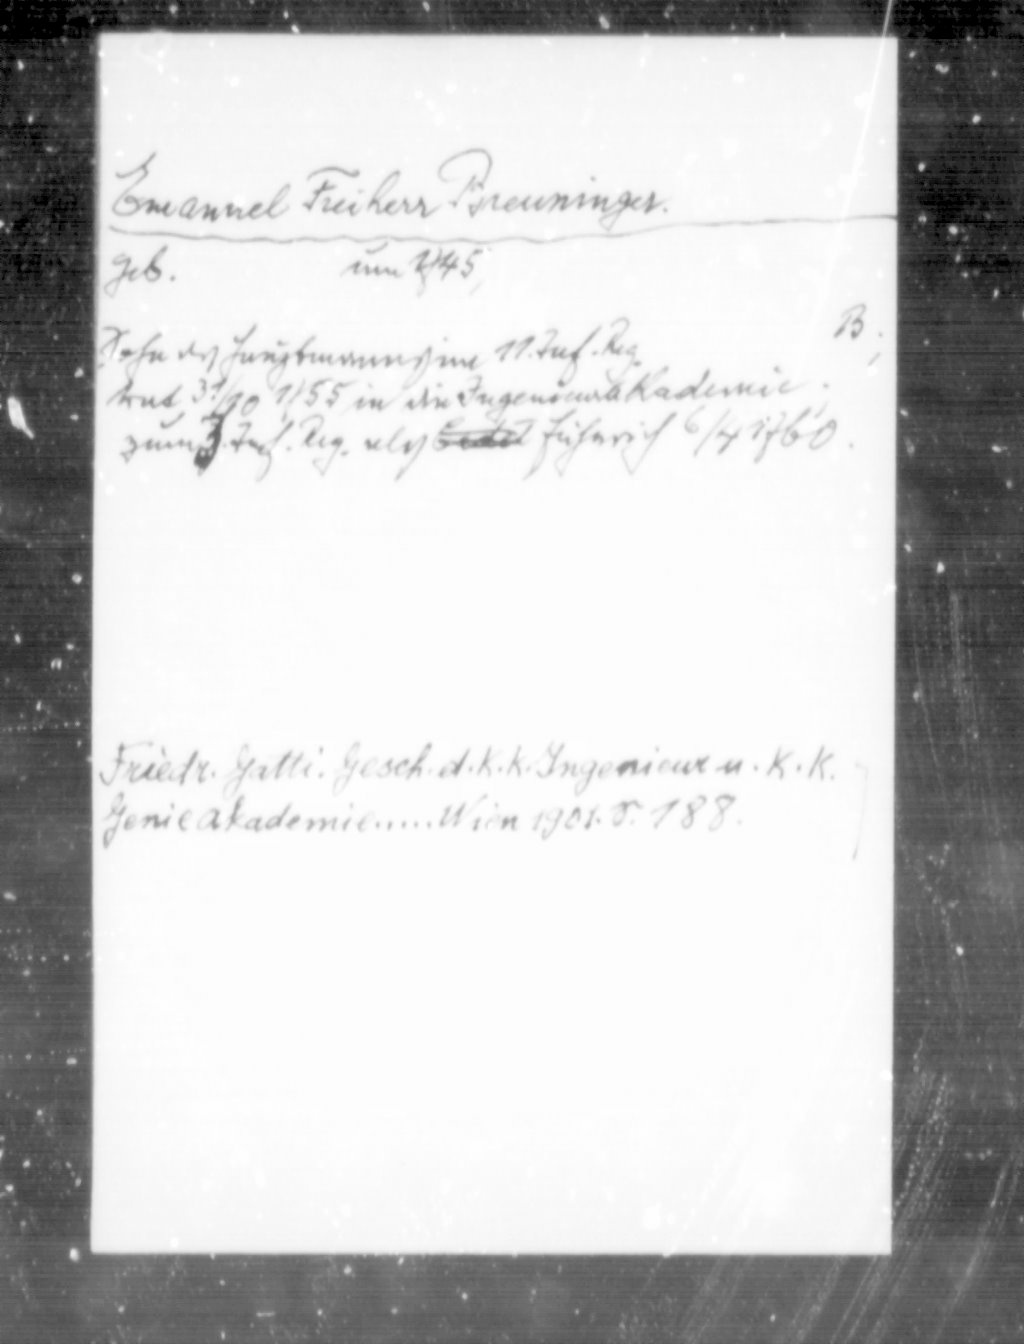 Emanuel Freiherr Breuninger.
geb. um 1745,
Sohn des Hauptmanns im 11. Inf. Reg. B.;
trat 31/10 1755 in die Ingenieurakademie;
zum 3. Inf. Reg. als Fähnrich 6/4 1760.
Friedr. Gatti. Gesch. d. K. k. Ingenieur u. K. K.
Genieakademie..... Wien 1901. S. 188.